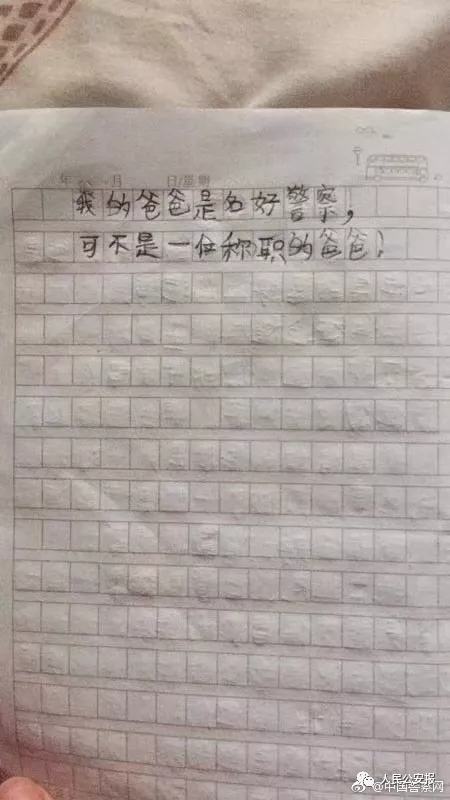 年 月 日 星期
我的爸爸是名好警察,
可不是一位称职的爸爸!
人民公安报
@中国警察网